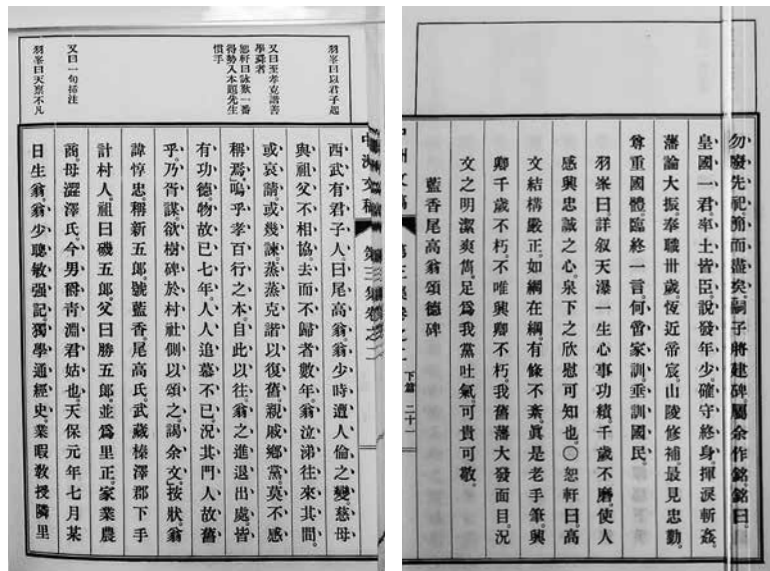 勿廢先祀。簡而盡矣。嗣子將建碑。屬余作銘。銘曰。
皇國一君。率土皆臣。說發年少。確守終身。揮淚斬姦。
藩論大振。奉職卅歲。恆近帝宸。山陵修補。最見忠勤。
尊重國體。臨終一言。何啻家訓。垂訓國民。
羽峯曰。詳叙天瀑一生心事功績。千歲不磨。使人
感興忠誠之心。泉下之欣慰可知也。〇恕軒曰。高
文結構嚴正。如網在綱。有條不紊。眞是老手筆。興
卿千歲不朽。不唯興卿不朽。我舊藩大發面目。況
文之明潔爽雋。足爲我黨吐氣。可貴可敬。
藍香尾高翁頌德碑
下篇 二十一
羽峯曰以君子起
又曰至孝克諧善
學舜者
恕軒曰詠歎一番
得勢入本題先生
慣手
又曰一句插注
羽峯曰天禀不凡
中洲文稿 第三集卷之二
西武有君子人。曰尾高翁。翁少時遭人倫之變。慈母
與祖父不相協。去而不歸者數年。翁泣涕往來其間。
或哀請。或幾諫。蒸蒸克諧以復舊。親戚鄉黨。莫不感
稱焉。嗚乎孝百行之本。自此以往。翁之進退出處。皆
有功德。物故已七年。人人追慕不已。況其門人故舊
乎。乃胥謀欲樹碑於村社側以頌之。謁余文。按狀。翁
諱惇忠。稱新五郎。號藍香。尾高氏。武藏榛澤郡下手
計村人。祖曰磯五郎。父曰勝五郎。並爲里正。家業農
商。母澀澤氏。今男爵青淵君姑也。天保元年七月某
日生翁。翁少聰敏强記。獨學通經史。業暇敎授隣里